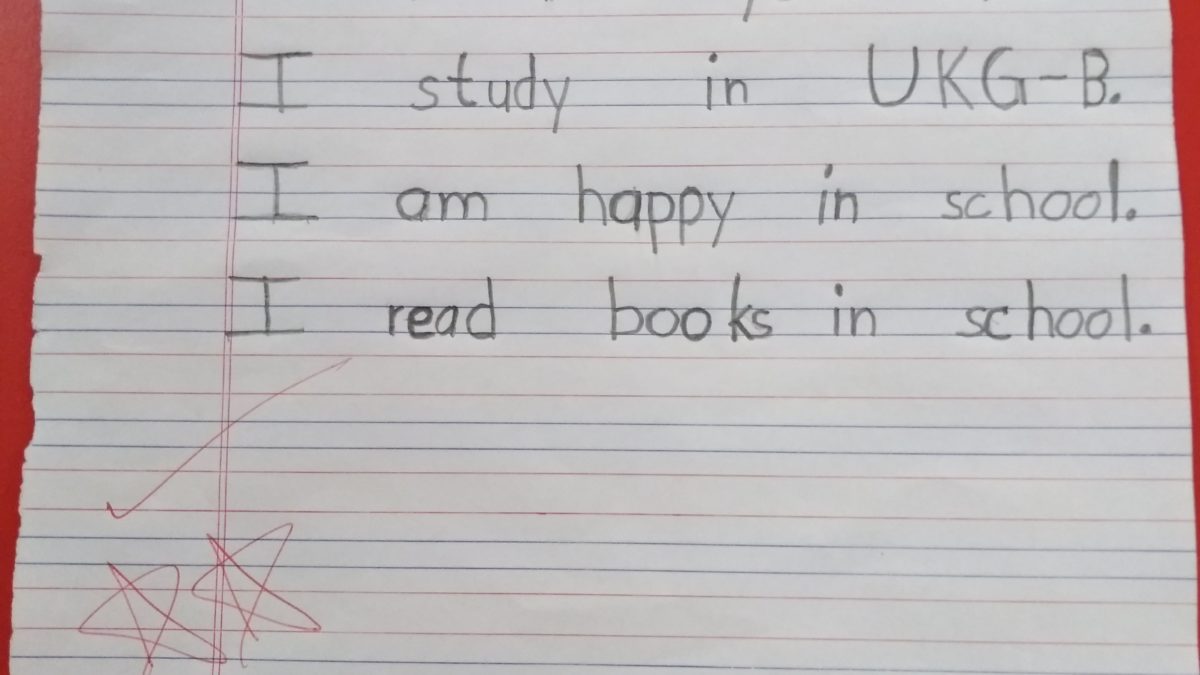 I study in UKG-B.
I am happy in school.
I read books in school.